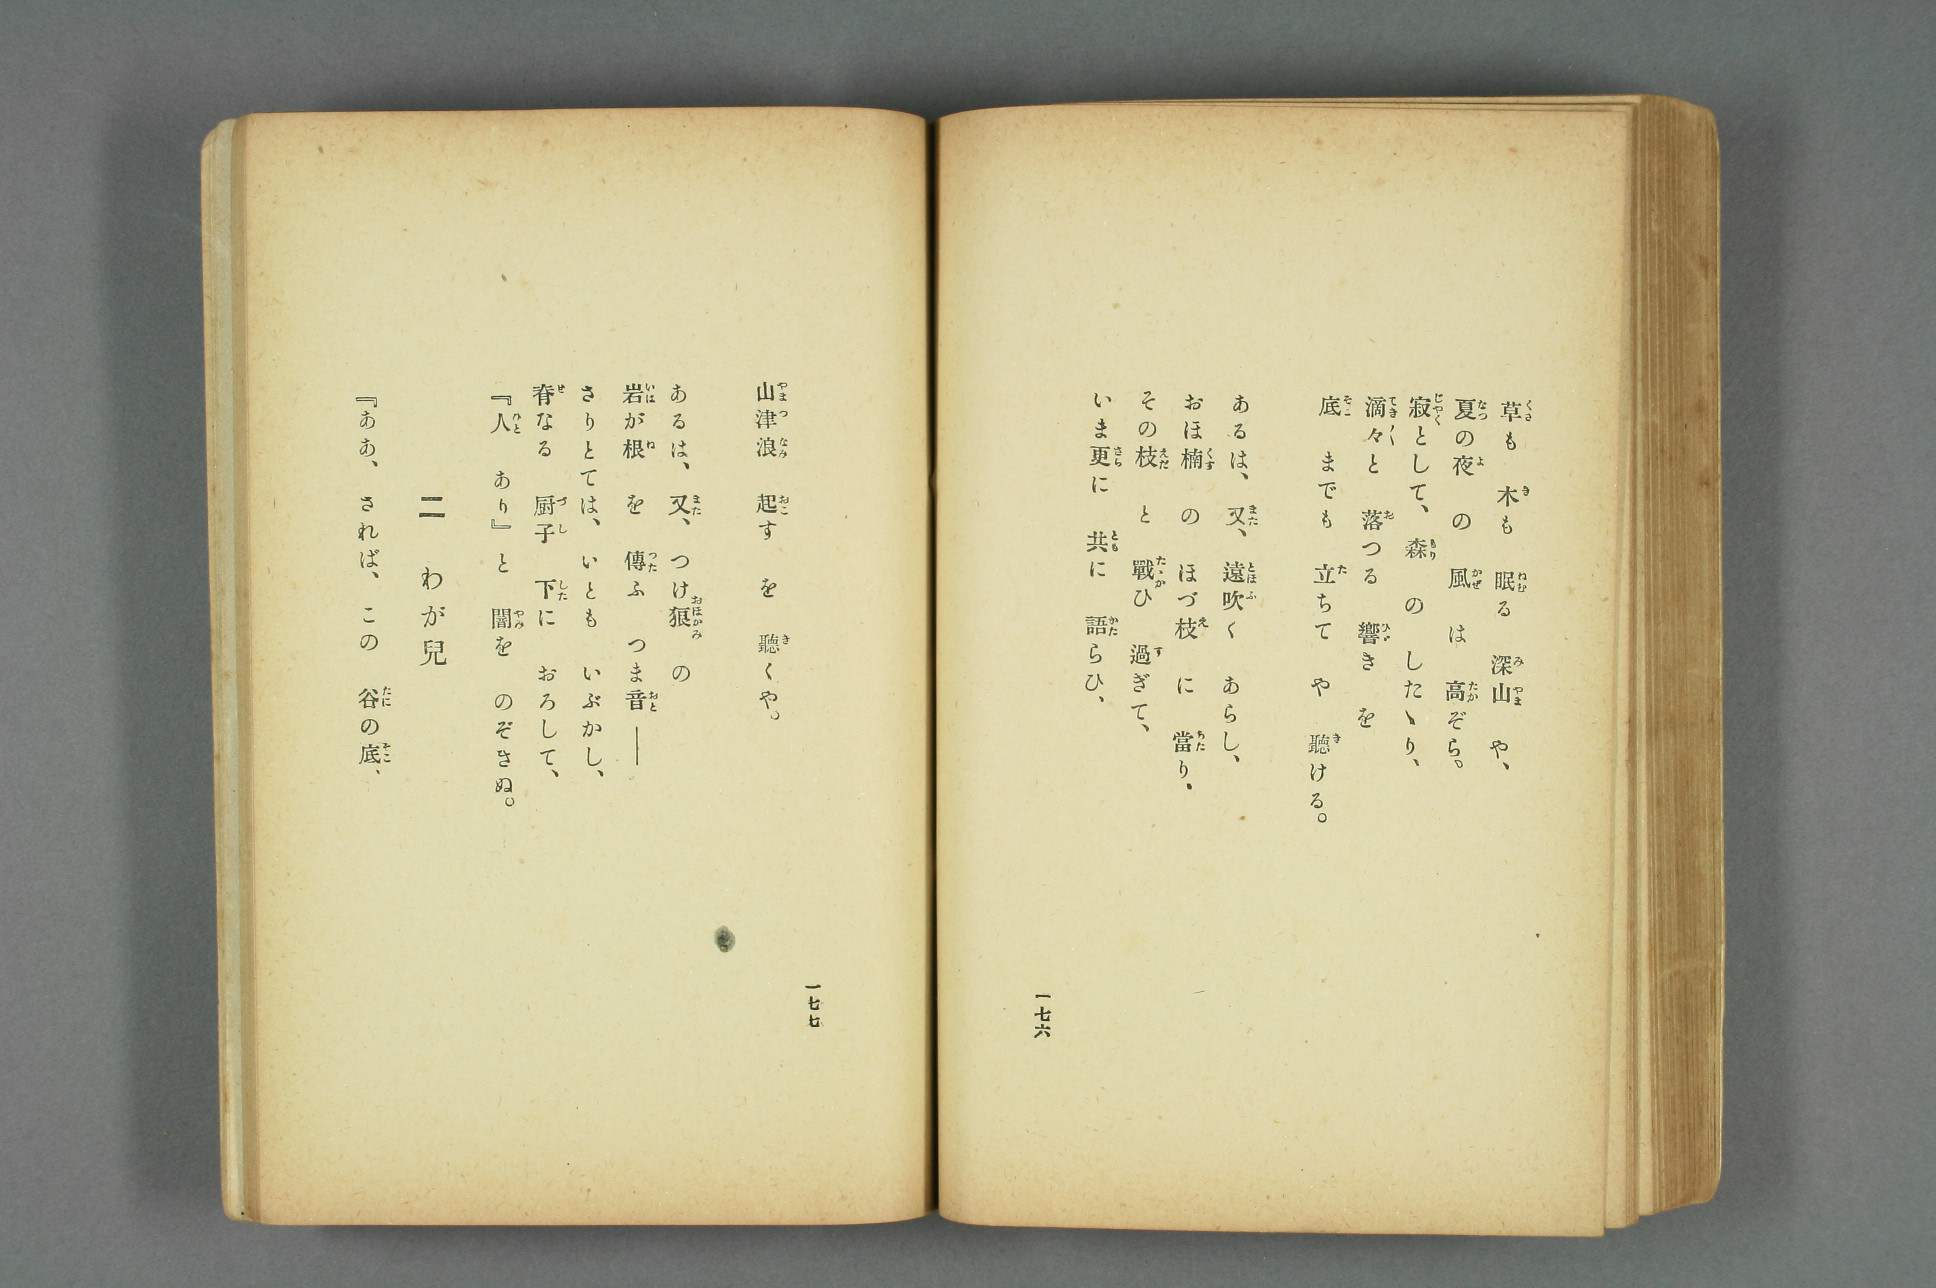 草も　木も　眠る　深山　や、
夏の夜　の　風　は　高ぞら。
寂として、　森　の　したゝり、
滴々と　落つる　響き　を
底　までも　立ちて　や　聽ける。
あるは、　又、　遠吹く　あらし、
おほ楠　の　ほづ枝　に　當り、
その枝　と　戰ひ　過ぎて、
いま更に　共に　語らひ、
一七六
山津浪　起す　を　聽くや。
あるは、　又、　つけ狼　の
岩が根　を　傳ふ　つま音――
さりとては、　いとも　いぶかし、
脊なる　厨子　下に　おろして、
『人　あり』と　闇を　のぞきぬ。
二　わが兒
『ああ、　されば、　この　谷の底、
一七七